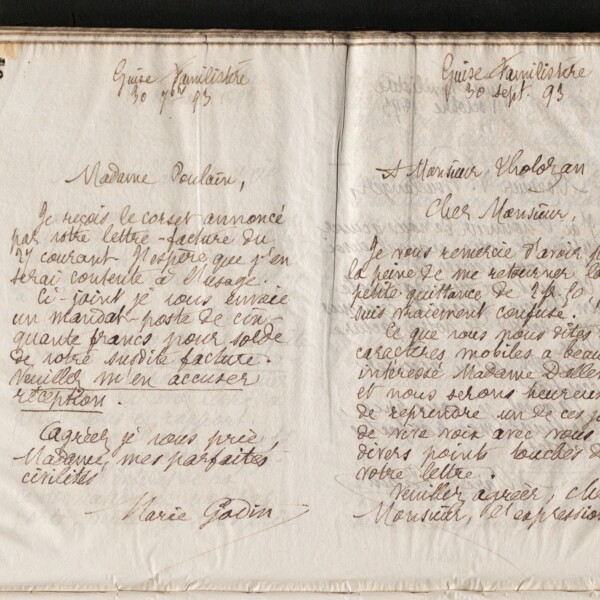 Guise Familistère
30 7bre 93
Madame Poulain,
Je reçois le corset annoncé
par votre lettre-facture du
27 courant. J'espère que j'en
serai contente à l'usage.
Ci-joint je vous envoie
un mandat-poste de cin-
quante francs pour solde
de votre susdite facture.
Veuillez m'en accuser
réception.
Agréez je vous prie,
Madame, mes parfaites
civilités
Marie Godin
Guise Familistère
30 sept. 93
A Monsieur
Cher Monsieur,
Je vous remercie d'avoir
la peine de me retourner
petite quittance de 2f 50,
suis vraiement confuse.
Ce que vous nous dites
caractères mobiles a beau
intéressé Madame Dallet
et nous serons heureuses
de reprendre un de ces
de vive voix avec vous
divers points touchés
votre lettre.
Veuillez agréer, cher
Monsieur, l'expression